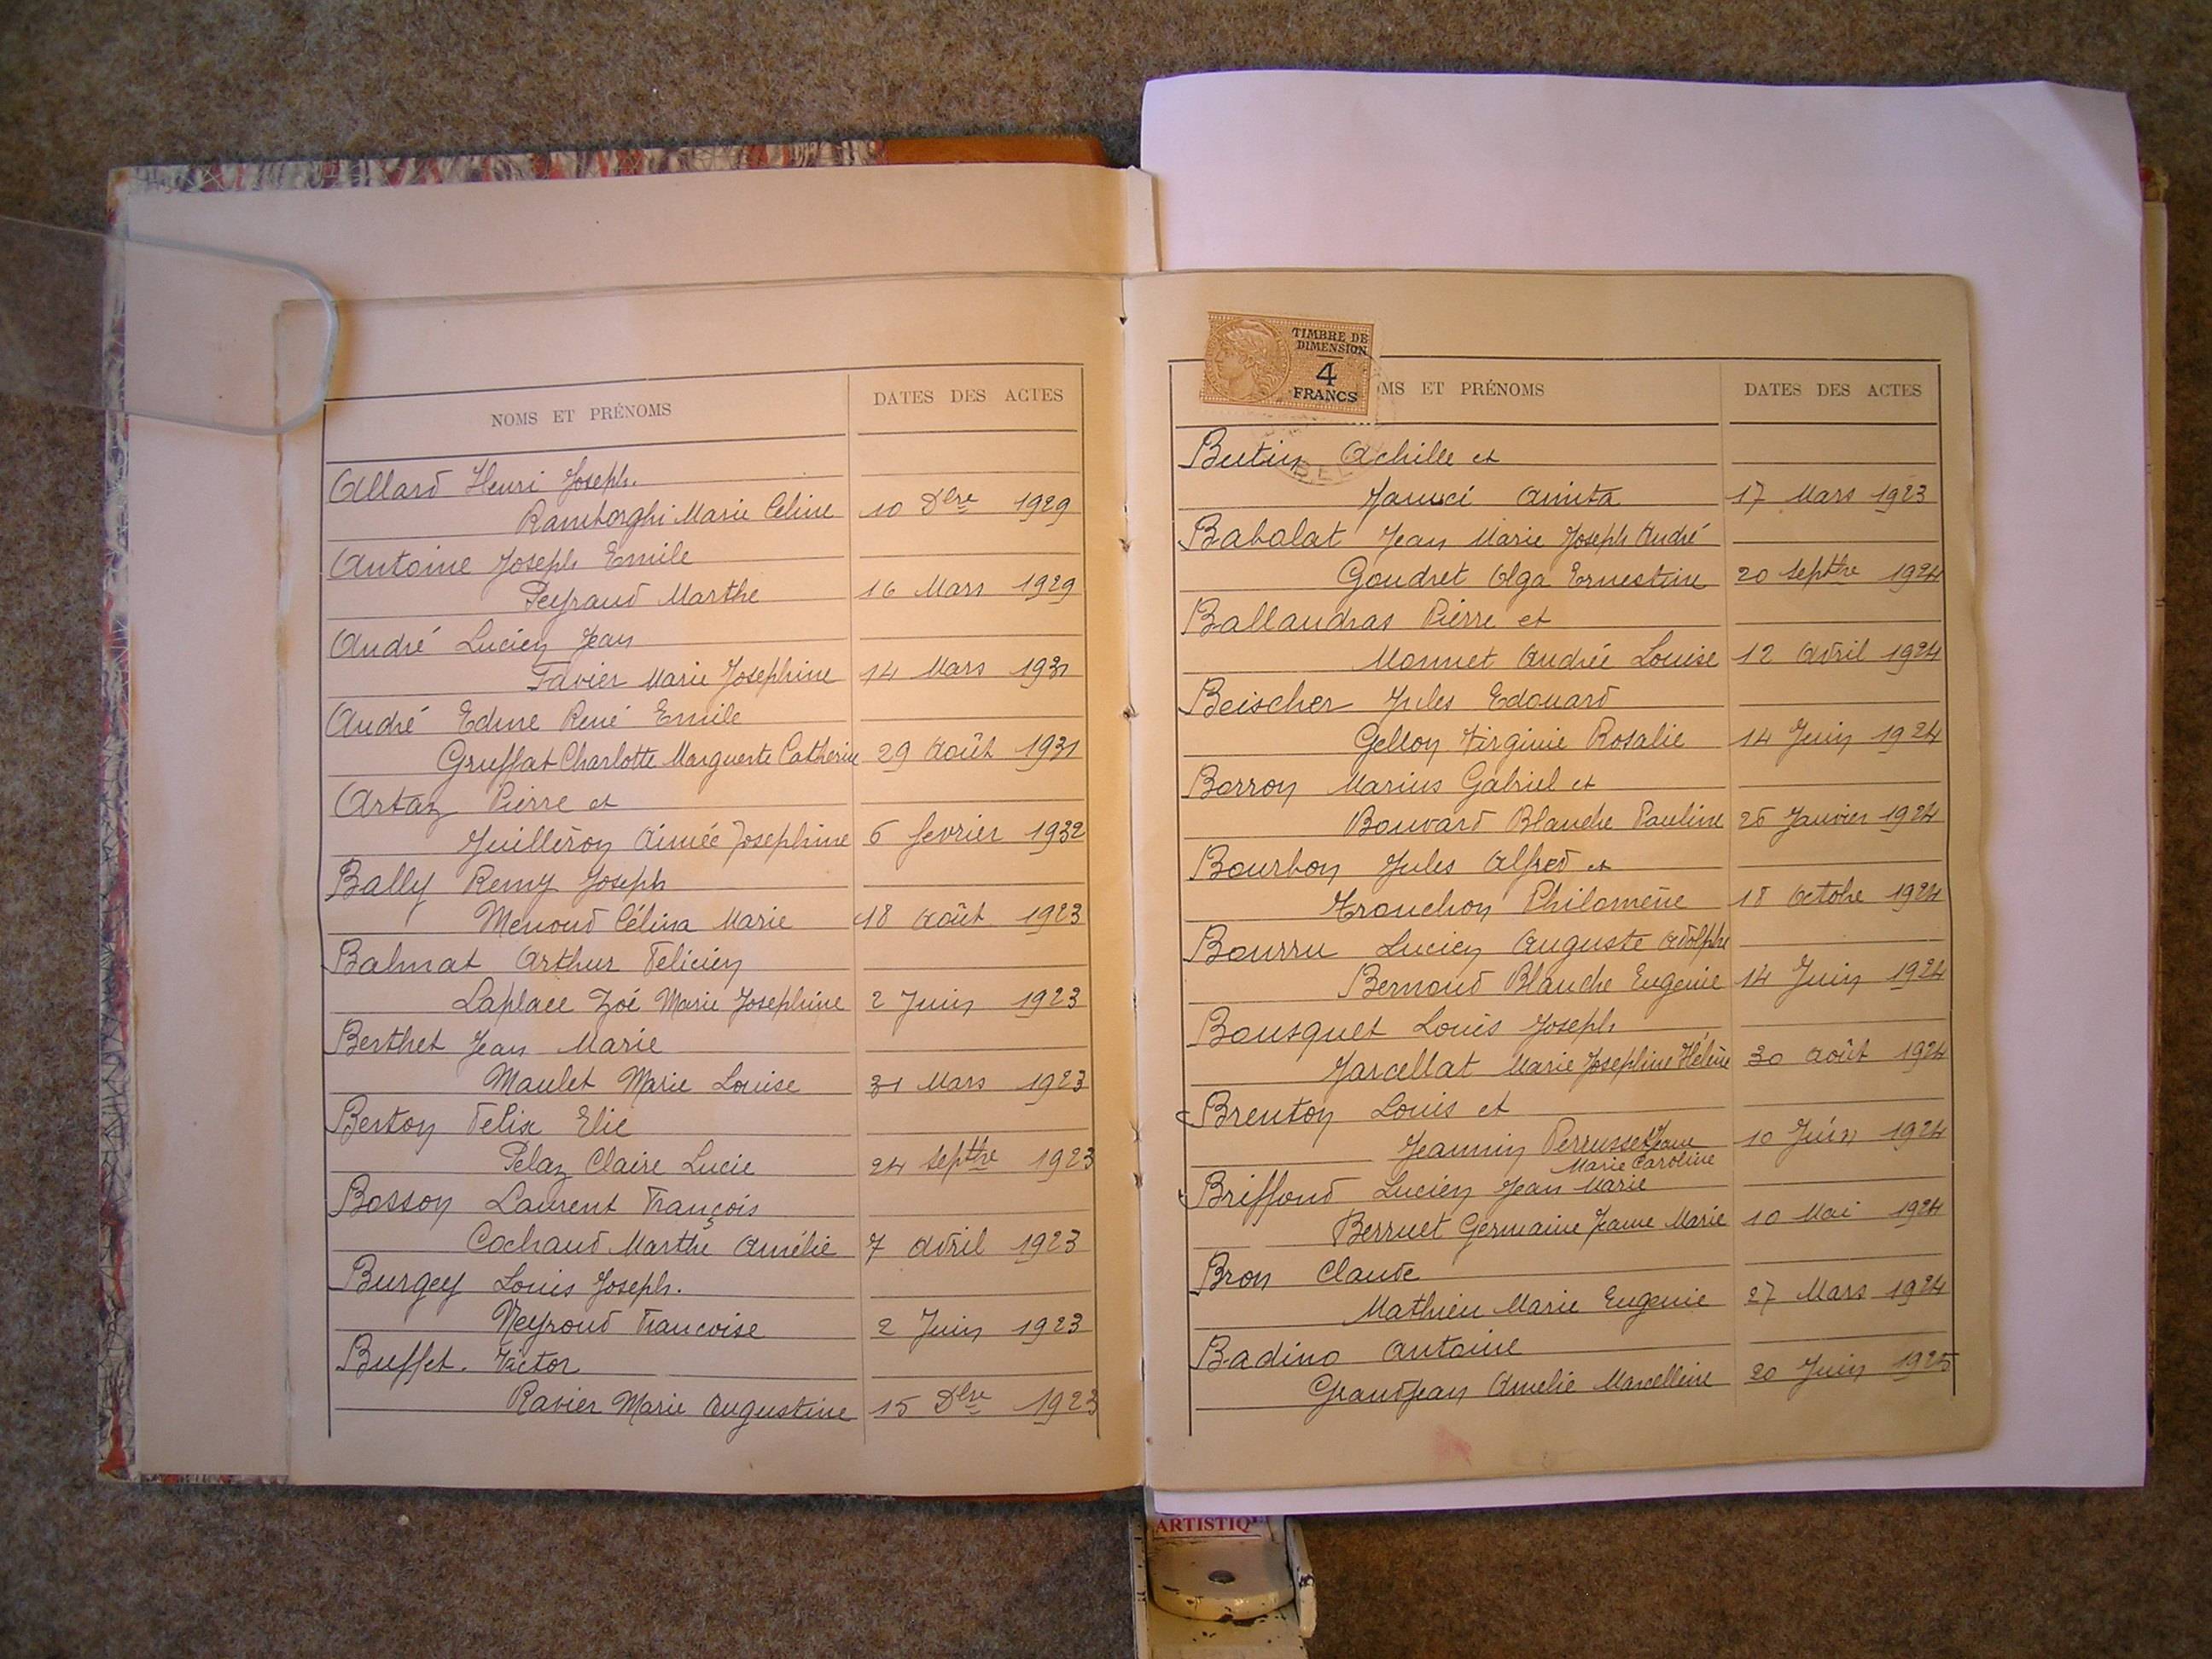 NOMS ET PRÉNOMS
DATES DES ACTES
Allard Henri Joseph.
Ramborghi Marie Céline 10 Dbre 1929
Antoine Joseph Emile
Peyraud Marthe 16 Mars 1929
André Lucien Jean
Favier Marie Josephine 14 Mars 1931
André Edme René Emile
Gruffat Charlotte Marguerite Catherine 29 Août 1931
Artaz Pierre et
Juilleron Aimée Josephine 6 fevrier 1932
Bally Remy Joseph
Menoud Célina Marie 18 Août 1923
Balmat Arthur Felicien
Laplace Zoé Marie Josephine 2 Juin 1923
Berthet Jean Marie
Maulet Marie Louise 31 Mars 1923
Berton Felix Elie
Pelaz Claire Lucie 24 septbre 1923
Bosson Laurent François
Cochaud Marthe Amélie 7 Avril 1923
Burgey Louis Joseph.
Neyroud Francoise 2 Juin 1923
Buffet. Victor
Ravier Marie Augustine 15 Dbre 1923
TIMBRE DE
DIMENSION
4
FRANCS
OMS ET PRÉNOMS
DATES DES ACTES
Butin Achille et
Anita 17 Mars 1923
Babolat Jean Marie Joseph André
Goudret Olga Ernestine 20 septbre 1924
Ballandras Pierre et
Monnet Andrée Louise 12 Avril 1924
Beischer Jules Edouard
Gellon Virginie Rosalie 14 Juin 1924
Borron Marius Gabriel et
Bouvard Blanche Pauline 26 Janvier 1924
Bourbon Jules Alfred et
Tronchon Philomène 18 Octobre 1924
Bourru Lucien Auguste Adolphe
Bernoud Blanche Eugenie 14 Juin 1924
Bousquet Louis Joseph
Jarcellat Marie Josephine Hélène 30 Août 1924
Brenton Louis et
Jeannin Perrusset Jeanne 10 Juin 1924
Marie Caroline
Briffoud Lucien Jean Marie
Berruet Germaine Jeanne Marie 10 Mai 1924
Bron Claude
Mathieu Marie Eugenie 27 Mars 1924
Badino Antoine
Grandjean Amelie Marcelline 20 Juin 1925
ARTISTIQ